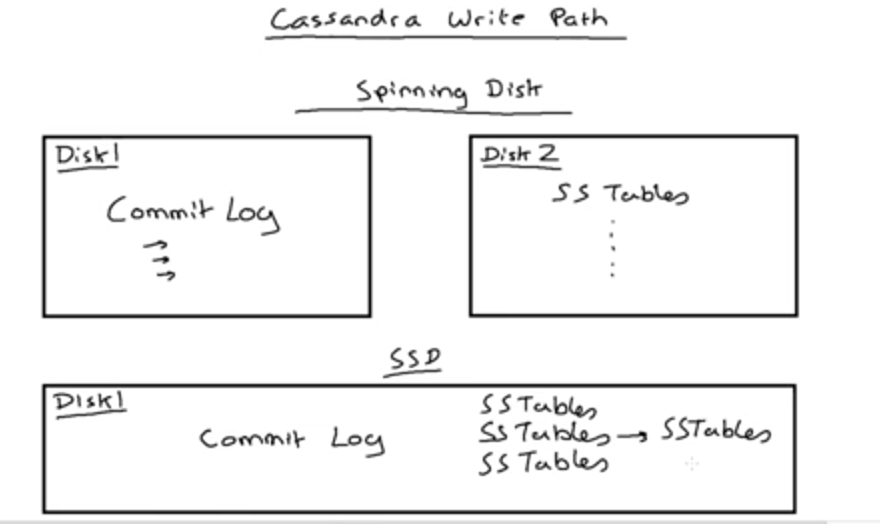 Cassandra Write Path
Spinning Disk
Disk1
Commit Log
Disk 2
SS Tables
SSD
Disk1
Commit Log
SSTables
SS Tables → SSTables
SS Tables